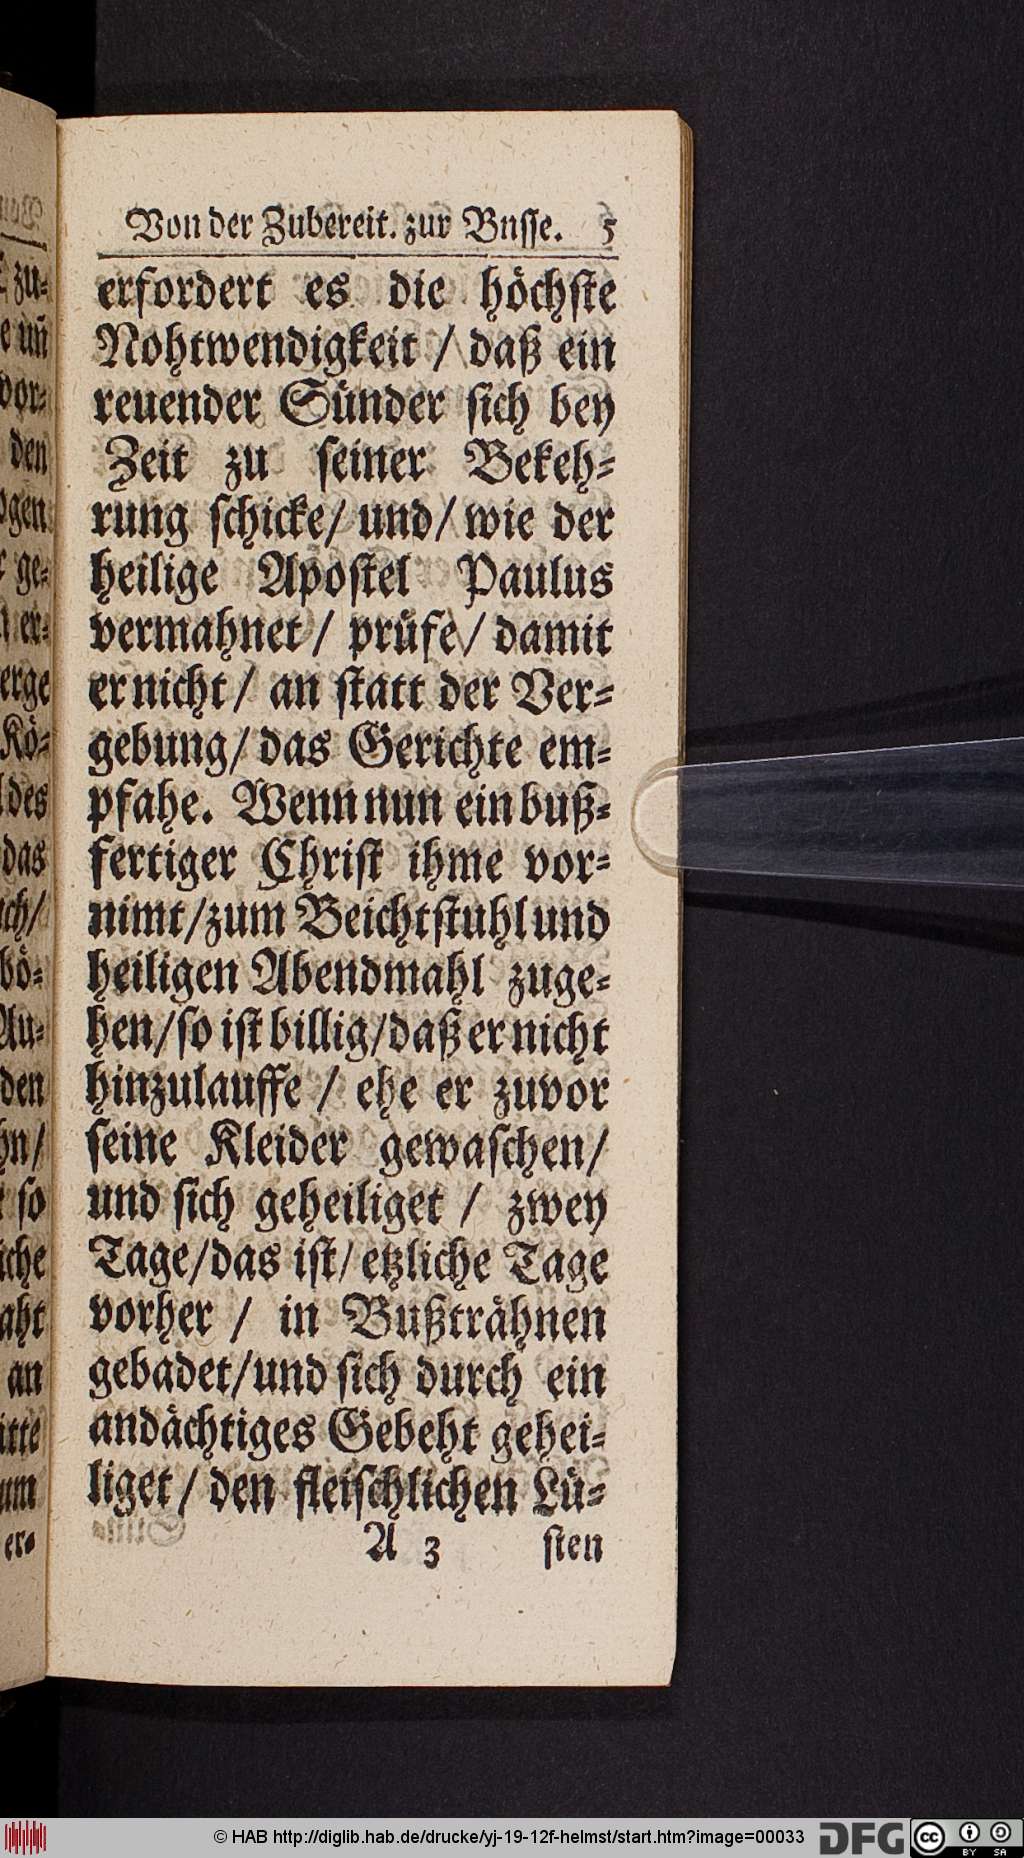 Von der Zubereit. zur Bnsse. 5
erfordert es die höchste
Nohtwendigkeit / daß ein
reuender Sünder sich bey
Zeit zu seiner Bekeh-
rung schicke/ und/ wie der
heilige Apostel Paulus
vermahnet / prüfe / damit
er nicht / an statt der Ver-
gebung/ das Gerichte em-
pfahe. Wenn nun ein buß-
fertiger Christ ihme vor-
nimt/zum Beichtstuhl und
heiligen Abendmahl zuge-
hen/so ist billig/daß er nicht
hinzulauffe / ehe er zuvor
seine Kleider gewaschen/
und sich geheiliget / zwey
Tage/das ist/ etzliche Tage
vorher / in Bußträhnen
gebadet/und sich durch ein
andächtiges Gebeht gehei-
liget / den fleischlichen Lü-
A 3 sten
zu-
e uñ
vor-
den
ogen
ge-
er-
erge
Kö-
des
das
ich/
bö-
Au-
den
hn/
so
iche
aht
an
itte
um
er-
© HAB http://diglib.hab.de/drucke/yj-19-12f-helmst/start.htm?image=00033
DFG
cc
BY SA